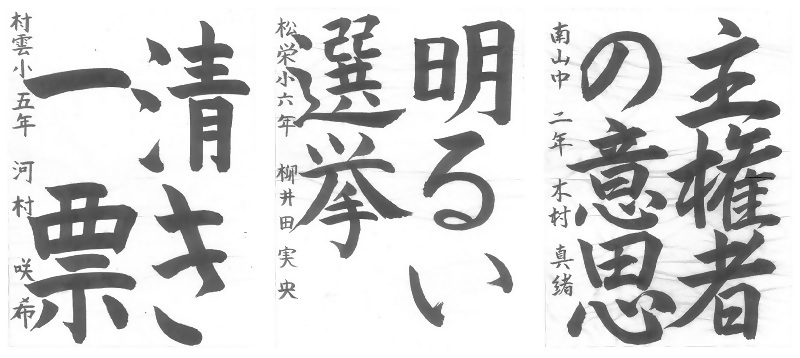 清き
一票
村雲小 五年 河村 咲希
明るい
選挙
松栄小 六年 柳井田 実央
主権者
の意思
南山中 二年 木村 真緒